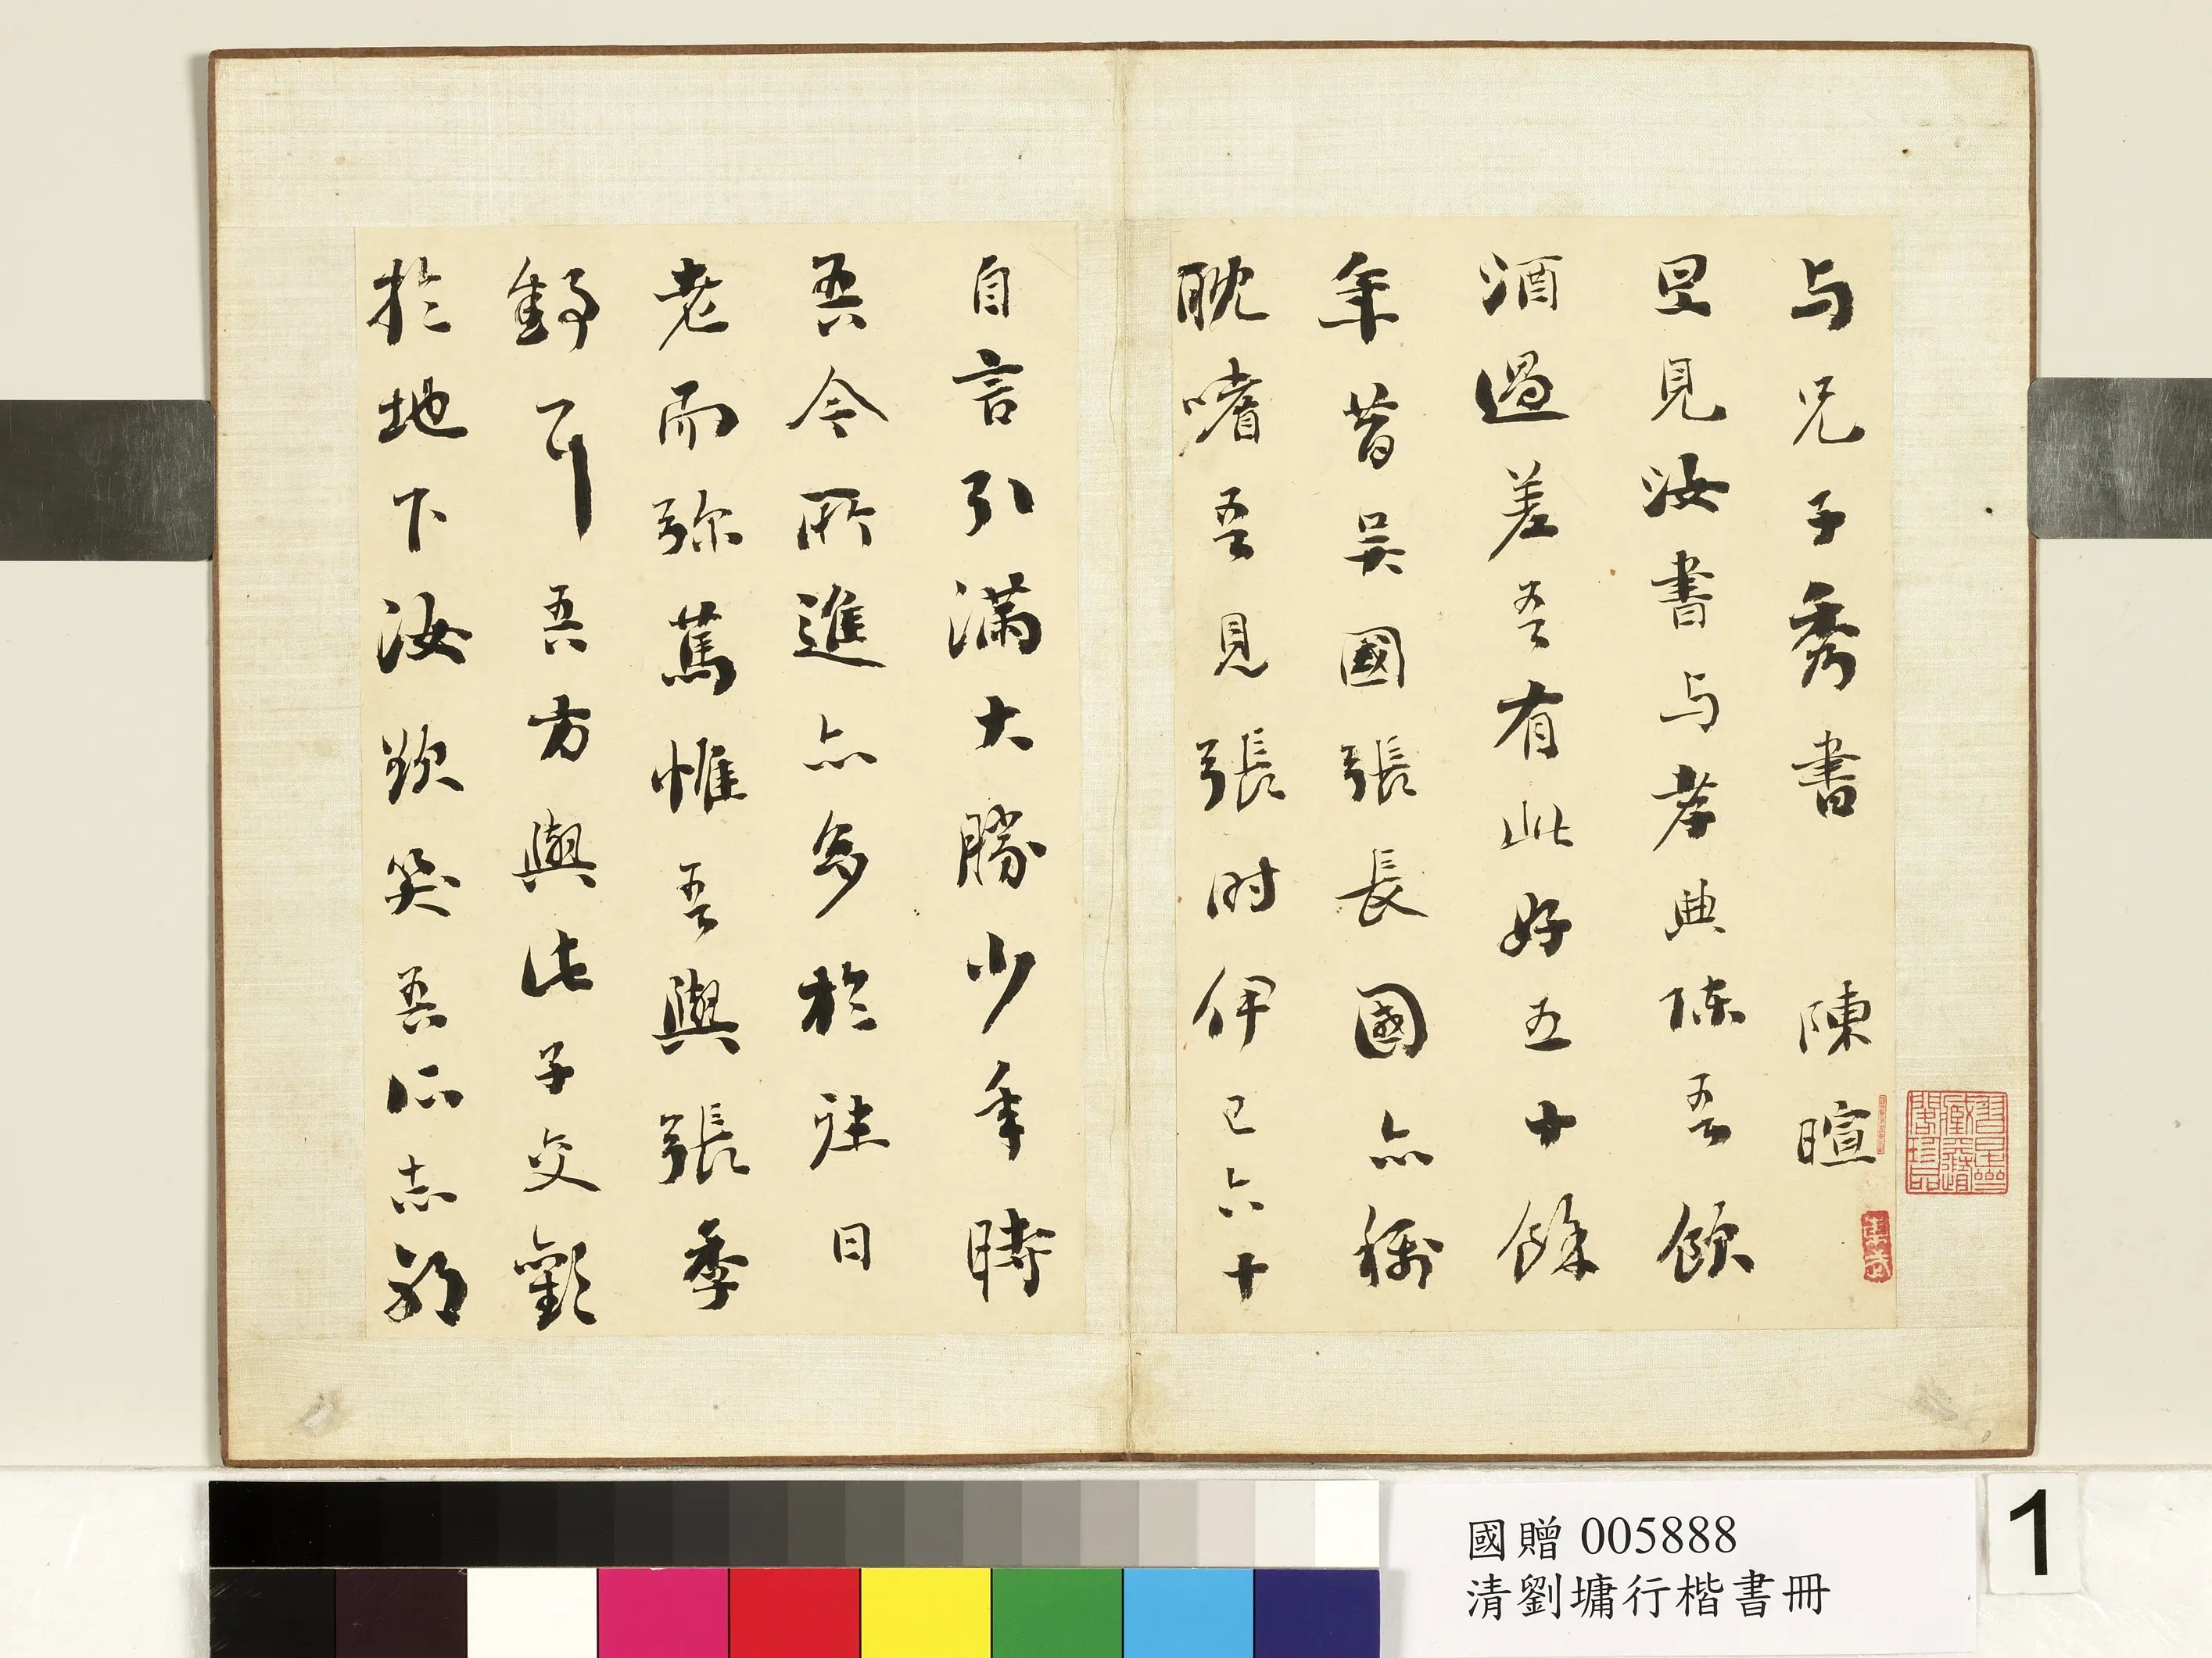 与兄子秀書 陳暄
旦見汝書与孝典陳吾飲
酒過差吾有此好五十餘
年昔吳國張長國亦稱
耽嗜吾見張时伊已六十
自言引滿大勝少年時
吾今所進亦多於往日
老而弥篤惟吾與張季
舒耳吾方與此子交歡
於地下汝欲笑吾所志耶
國贈 005888
清劉墉行楷書冊
1